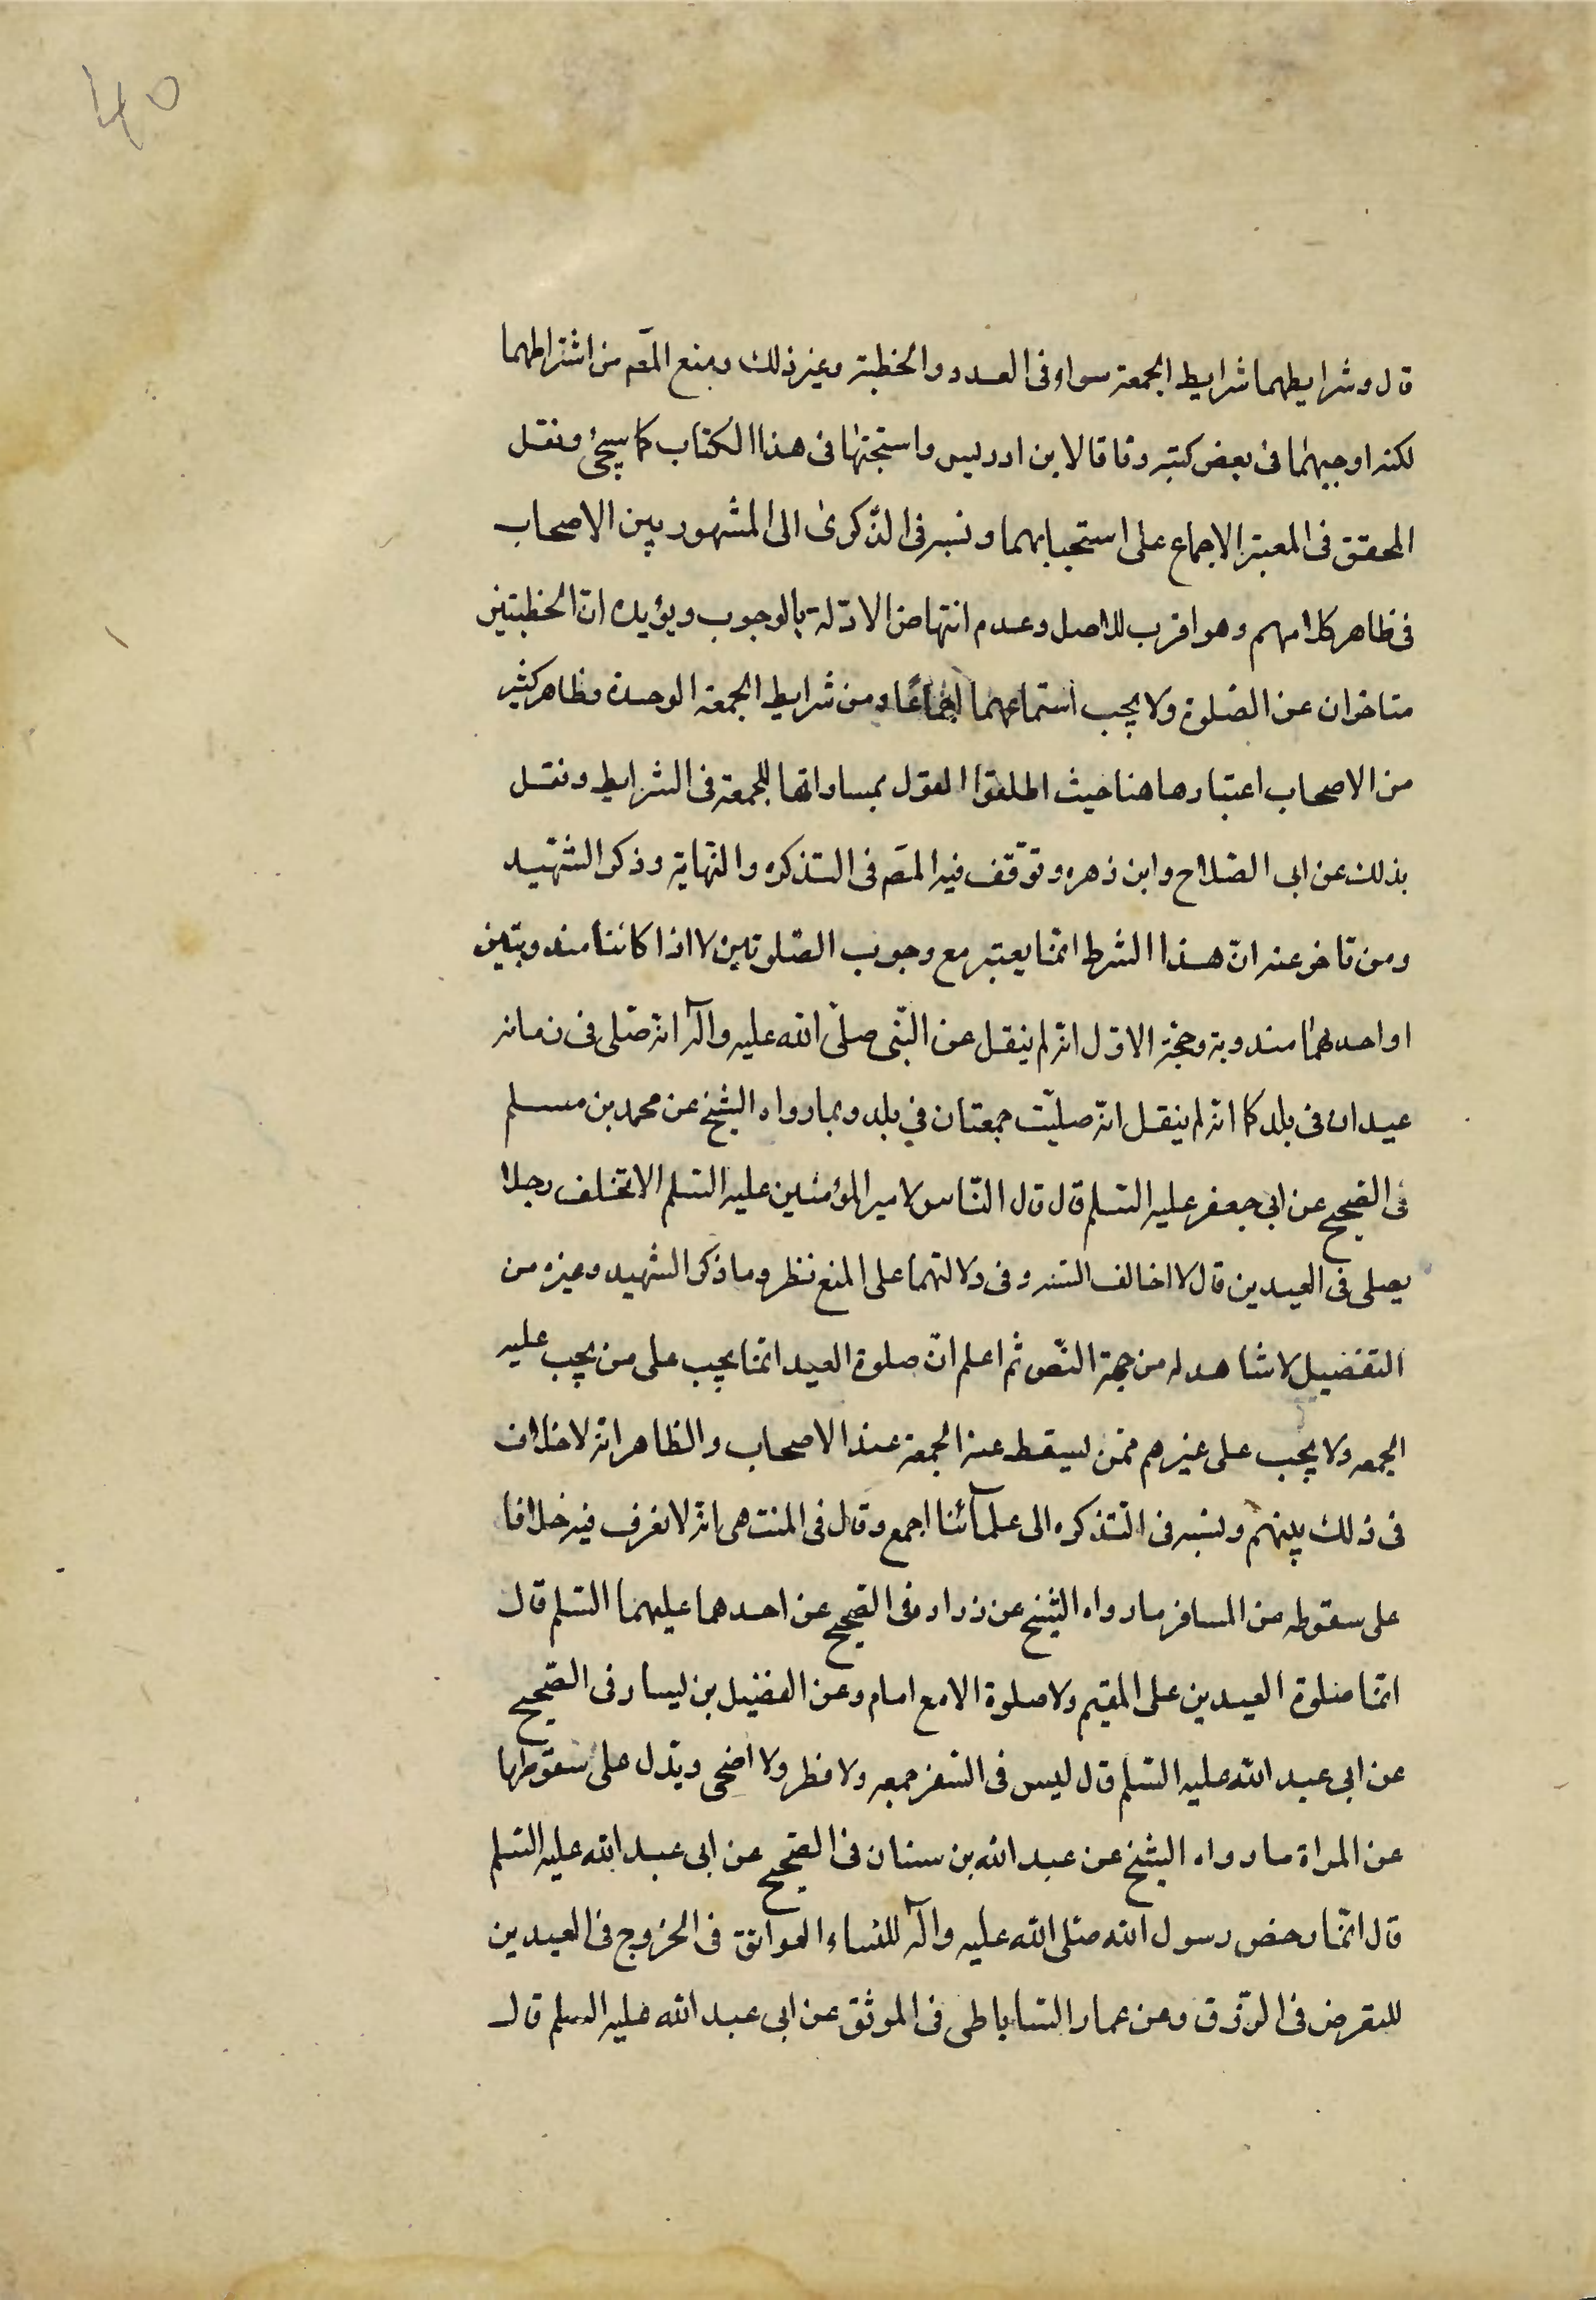 40
قال وشرايطهما شرايط الجمعة سواء فى العدد والخطبة وغير ذلك ومنع المصّ من اشتراطهما
لكنه اوجبهما فى بعض كتبه وفاقا لابن ادريس واستحبّها فى هذا الكتاب كما سيجئ ونقل
المحقق فى المعتبر الاجماع على استحبابهما ونسبه فى الذّكرى الى المشهور بين الاصحاب
فى ظاهر كلامهم وهو اقرب للاصل وعدم انتهاض الادّلة بالوجوب ويؤيده انّ الخطبتين
متاخران عن الصّلوة ولا يجب استماعهما اجماعًا ومن شرايط الجمعة الوحدة وظاهر كثير
من الاصحاب اعتبارها هنا حيث اطلقوا القول بمساواتها للجمعة فى الشرايط ونقل
بذلك عن ابى الصّلاح وابن زهره وتوّقف فيه المصّ فى التذكره والنّهاية وذكر الشّهيد
ومن تاخر عنه انّ هذا الشرط انّما يعتبر مع وجوب الصّلوتين لا اذا كانتا مندوبتين
او احدهما مندوبة وحجّة الاوّل انّه لم ينقل عن النّبى صلّى الله عليه وآله انّه صّلى فى زمانه
عيدان فى بلد كما انّه لم ينقل انّه صليّت جمعتان في بلد وبما رواه الشيخ عن محمد بن مسلم
فى الصحيح عن ابى جعفر عليه السّلم قال قال النّاس لامير المؤمنين عليه السّلم الا تخلف رجلا
يصلى فى العيدين قال لا اخالف السّنه وفى دلالتهما على المنع نظر وما ذكر الشهيد وغيره من
التفصيل لا شاهد له من جهة النّص ثم اعلم انّ صلوة العيد انّما يجب على من يجب عليه
الجمعه ولا يجب على غيرهم ممّن يسقط عنه الجمعة عند الاصحاب والظاهر انّه لا خلاف
فى ذلك بينهم ونسبه فى التّذكره الى علمآئنا اجمع وقال فى المنتهى انّه لا نعرف فيه خلافا
على سقوطه من المسافر ما رواه الشيخ عن زراره فى الصّحيح عن احدهما عليهما السّلم قال
انّما صلوة العيدين على المقيم ولا صلوة الا مع امام وعن الفضيل بن يسار فى الصّحيح
عن ابى عبد الله عليه السّلم قال ليس فى السّفر جمعه ولا فطر ولا اضحى ويّدل على سقوطها
عن المراة ما رواه الشيخ عن عبد الله بن سنان فى الصّحيح عن ابى عبد الله عليه السّلم
قال انّما رخص رسول الله صّلى الله عليه وآله للنساء العواتق فى الخروج فى العيدين
للتعرض فى الرّزق وعن عمار السّاباطى فى الموثق عن ابى عبد الله عليه السلم قال